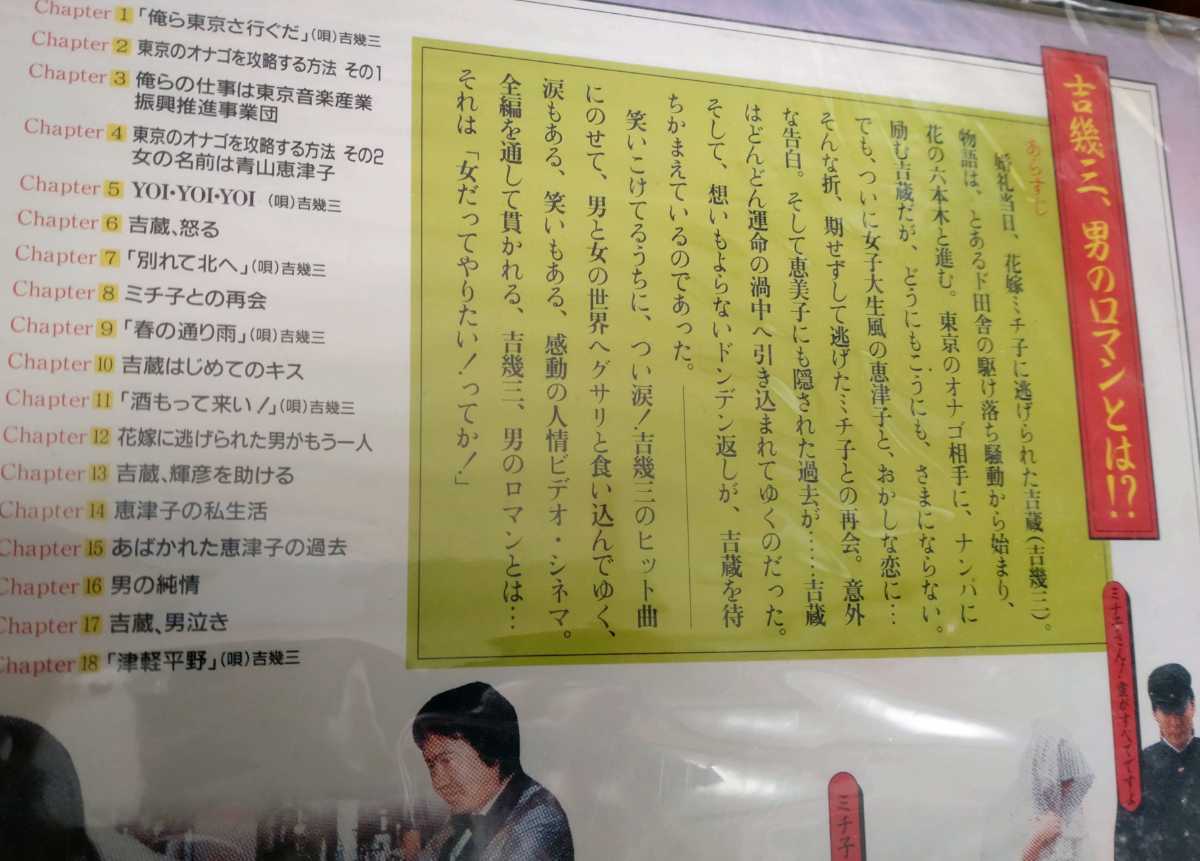 Chapter 1 「俺ら東京さ行ぐだ」(唄)吉幾三
Chapter 2 東京のオナゴを攻略する方法 その1
Chapter 3 俺らの仕事は東京音楽産業
振興推進事業団
Chapter 4 東京のオナゴを攻略する方法 その2
女の名前は青山恵津子
Chapter 5 YOI・YOI・YOI (唄)吉幾三
Chapter 6 吉蔵、怒る
Chapter 7 「別れて北へ」(唄)吉幾三
Chapter 8 ミチ子との再会
Chapter 9 「春の通り雨」(唄)吉幾三
Chapter 10 吉蔵はじめてのキス
Chapter 11 「酒もって来い!」(唄)吉幾三
Chapter 12 花嫁に逃げられた男がもう一人
Chapter 13 吉蔵、輝彦を助ける
Chapter 14 恵津子の私生活
Chapter 15 あばかれた恵津子の過去
Chapter 16 男の純情
Chapter 17 吉蔵、男泣き
Chapter 18 「津軽平野」(唄)吉幾三
吉幾三、男のロマンとは!?
あらすじ
婚礼当日、花嫁ミチ子に逃げられた吉蔵(吉幾三)。
物語は、とあるド田舎の駆け落ち騒動から始まり、
花の六本木と進む。東京のオナゴ相手に、ナンパに
励む吉蔵だが、どうにもこうにも、さまにならない。
でも、ついに女子大生風の恵津子と、おかしな恋に…
そんな折、期せずして逃げたミチ子との再会。意外
な告白。そして恵美子にも隠された過去が……吉蔵
はどんどん運命の渦中へ引き込まれてゆくのだった。
そして、想いもよらないドンデン返しが、吉蔵を待
ちかまえているのであった。
笑いこけてるうちに、つい涙!吉幾三のヒット曲
にのせて、男と女の世界へグサリと食い込んでゆく、
涙もある、笑いもある、感動の人情ビデオ・シネマ。
全編を通して貫かれる、吉幾三、男のロマンとは…
それは「女だってやりたい!ってか!」
ミチ子さん!愛がすべてですよ
ミチ子